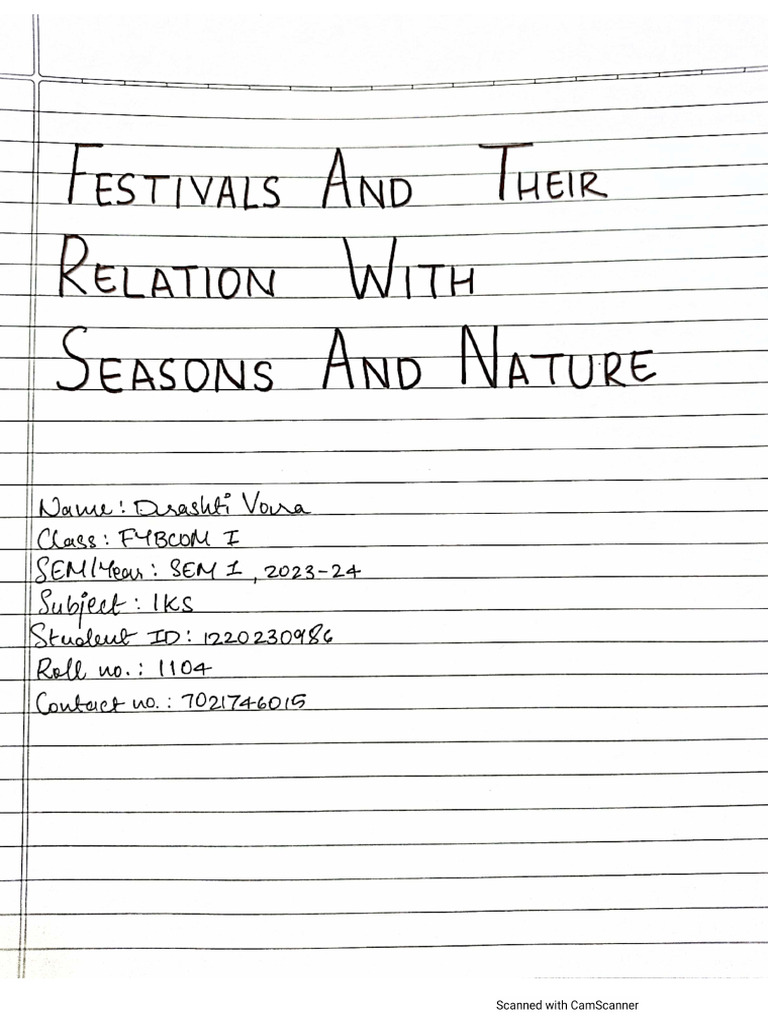 FESTIVALS AND THEIR
RELATION WITH
SEASONS AND NATURE
Name: Drashti Vora
Class: FYBCOM I
SEM/Year: SEM 1, 2023-24
Subject: IKS
Student ID: 1220230986
Roll no.: 1104
Contact no.: 7021746015
Scanned with CamScanner